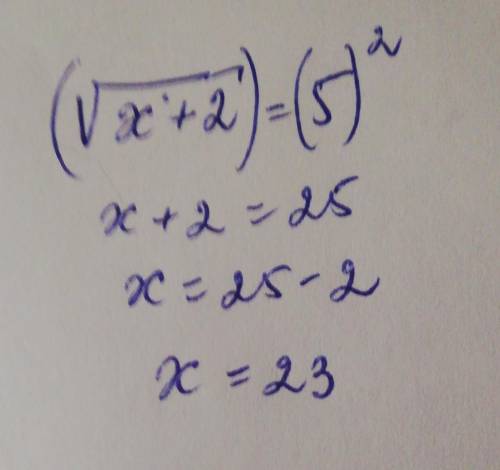 (√x+2)=(5)²
x+2=25
x=25-2
x=23